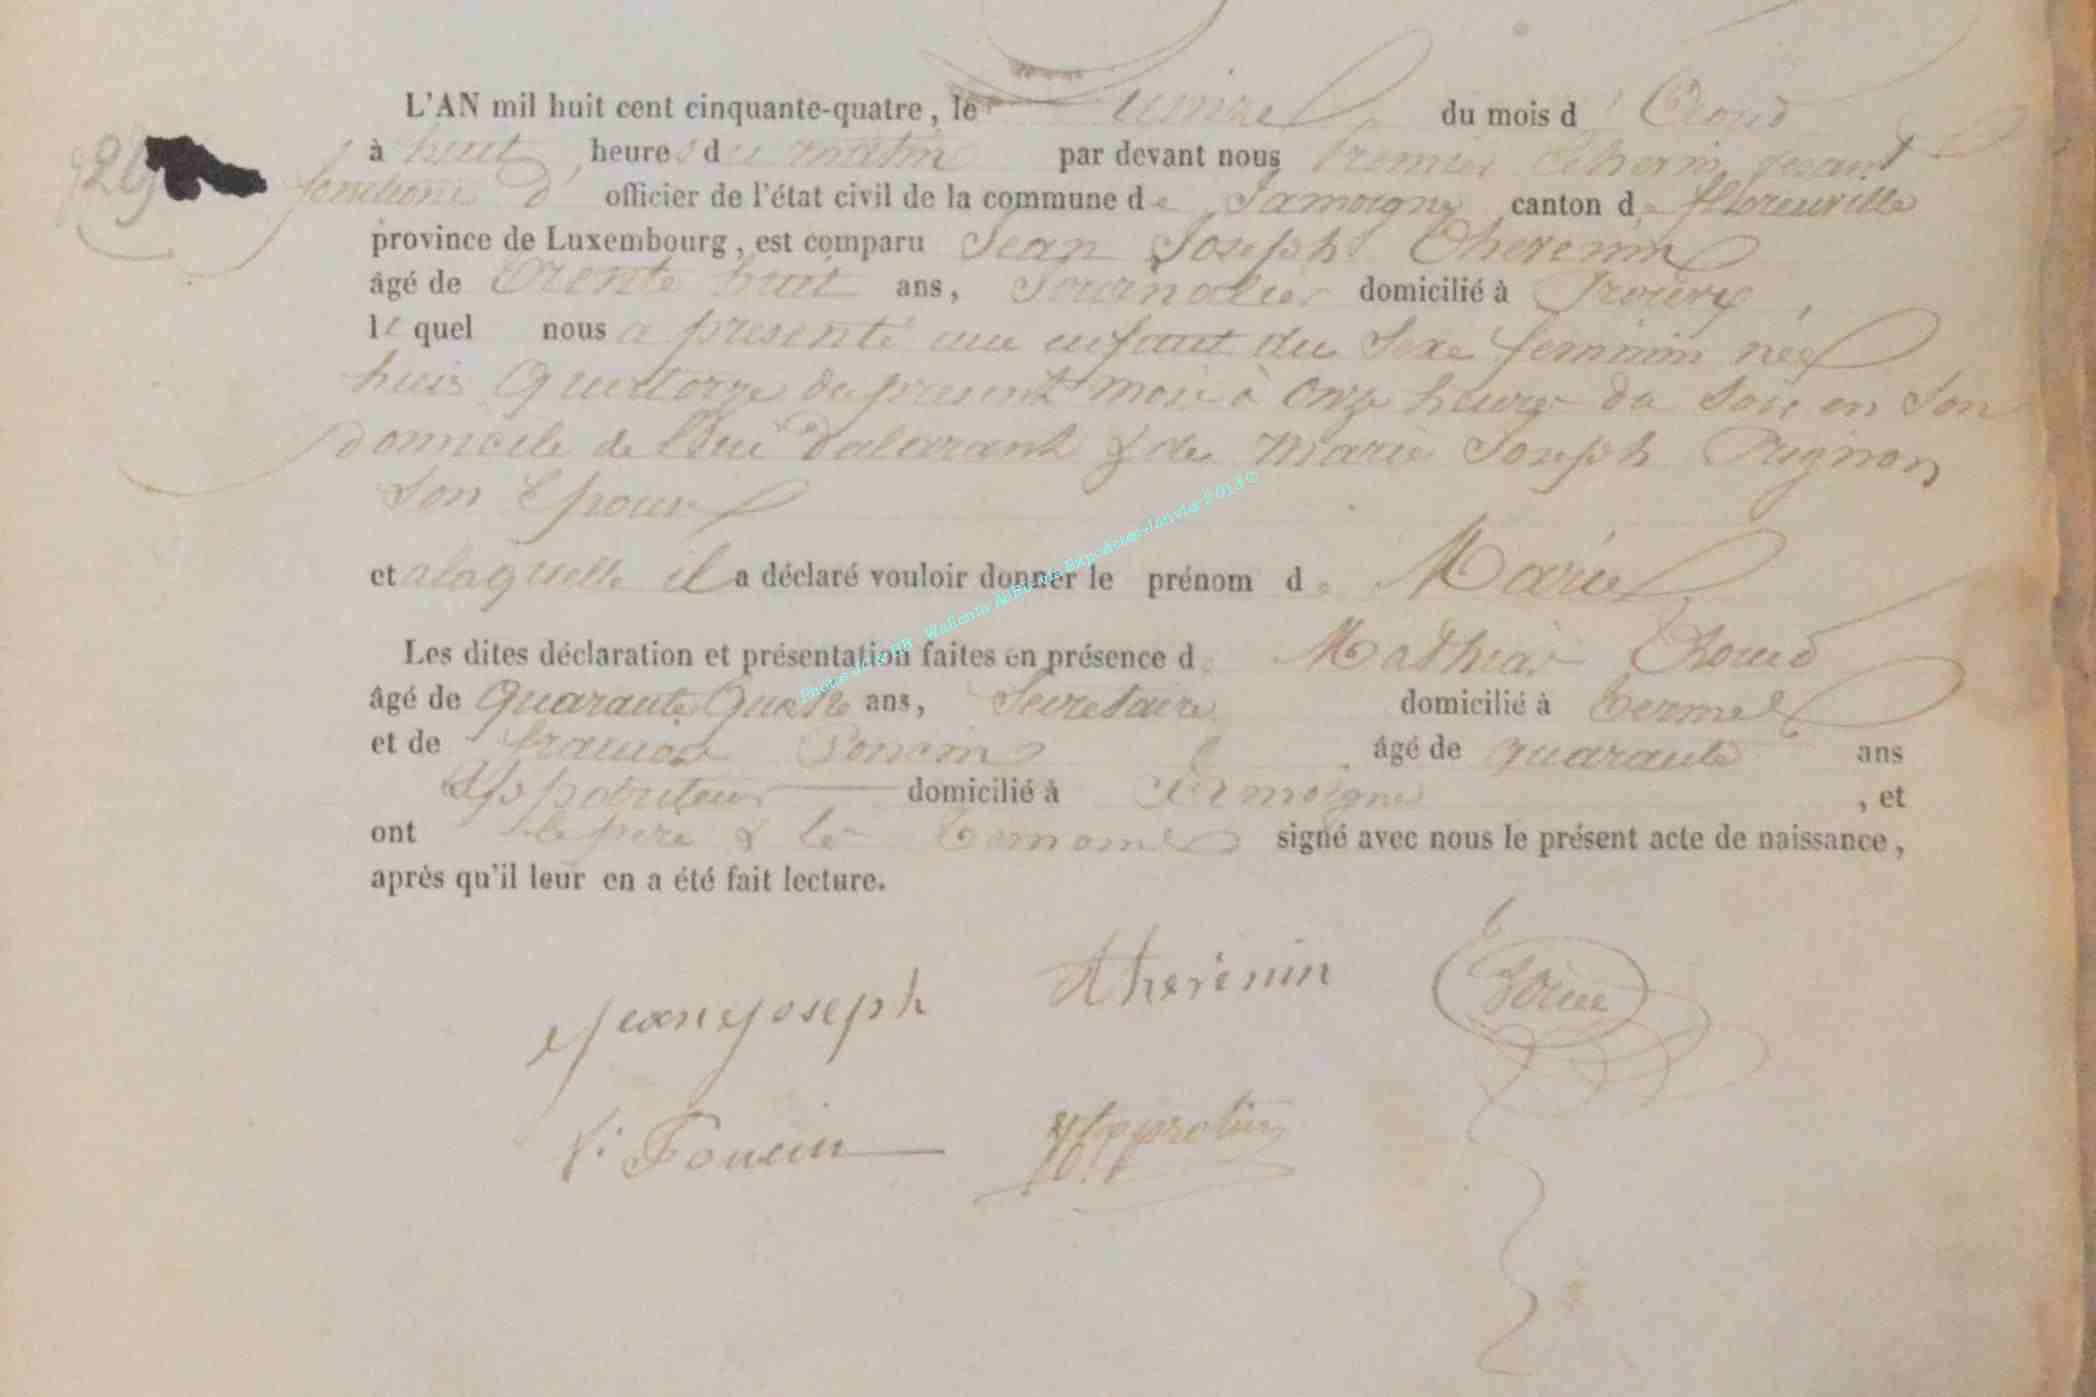 L'AN mil huit cent cinquante-quatre, le quinze du mois d'Aout
29
à huit heures du matin par devant nous Premier Echevin faisant
fonctions d' officier de l'état civil de la commune de Jamoigne canton de florenville
province de Luxembourg, est comparu Jean Joseph Therenin
âgé de trente huit ans, Journalier domicilié à
lequel nous a presenté une enfant du Sexe feminin née
quatorze du present mois à onze heures du Soir en Son
domicile de lui declarant & de Marie Joseph
Son Epouse
et a laquelle il a déclaré vouloir donner le prénom de Marie
Les dites déclaration et présentation faites en présence de Mathias
âgé de Quarante Quatre ans, Secretaire domicilié à Termes
et de francois Poncin âgé de quarante ans
domicilié à Jamoigne, et
ont le père & les Temoins signé avec nous le présent acte de naissance,
après qu'il leur en a été fait lecture.
Jean joseph therenin
Poncin